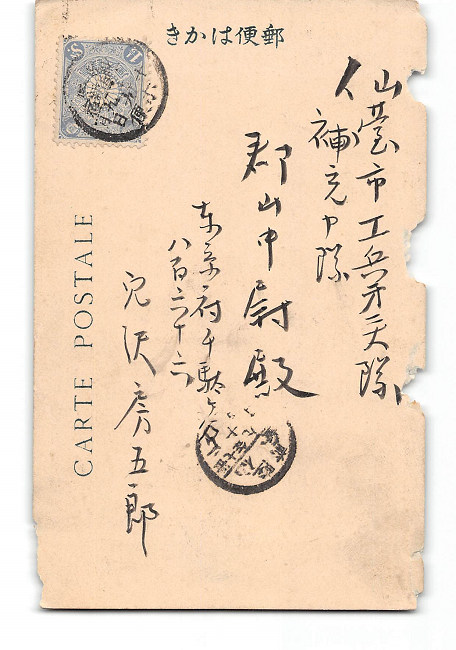 郵便はかき
仙臺市工兵第二大隊
補充中隊
郡山中尉殿
東京府千駄ヶ谷
八百六十六
穴沢房五郎
CARTE POSTALE